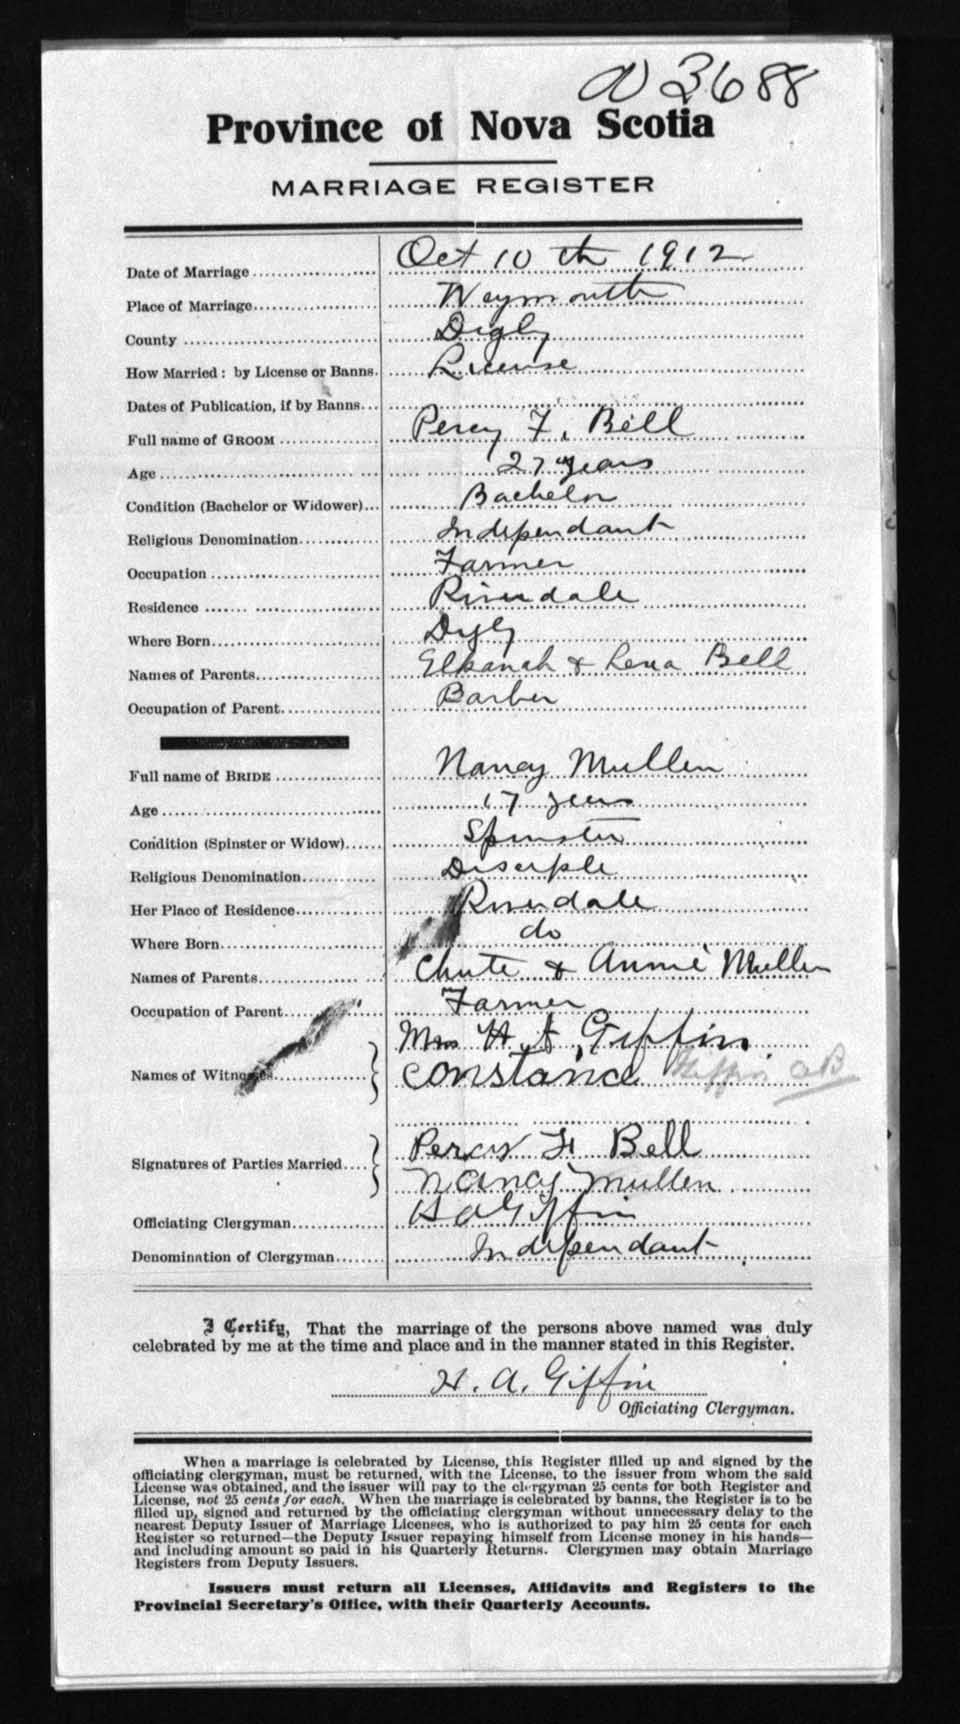 N 3688
Province of Nova Scotia
MARRIAGE REGISTER
Date of Marriage Oct 10th 1912
Place of Marriage Weymouth
County Digby
How Married: by License or Banns. License
Dates of Publication, if by Banns
Full name of GROOM Percy F. Bell
Age 27 years
Condition (Bachelor or Widower) Bachelor
Religious Denomination Independant
Occupation Farmer
Residence Riverdale
Where Born Digby
Names of Parents Elkanah & Lena Bell
Occupation of Parent Barber
Full name of BRIDE Nancy Mullen
Age 17 years
Condition (Spinster or Widow) Spinster
Religious Denomination Disciple
Her Place of Residence Riverdale
Where Born do
Names of Parents Chute & Annie Mullen
Occupation of Parent Farmer
Mrs H. A. Giffin
Names of Witnesses Constance Giffin
Signatures of Parties Married Percy F Bell
Nancy Mullen
Officiating Clergyman H A Giffin
Denomination of Clergyman Independant
I Certify, That the marriage of the persons above named was duly
celebrated by me at the time and place and in the manner stated in this Register.
H. A. Giffin
Officiating Clergyman.
When a marriage is celebrated by License, this Register filled up and signed by the
officiating clergyman, must be returned, with the License, to the issuer from whom the said
License was obtained, and the issuer will pay to the clergyman 25 cents for both Register and
License, not 25 cents for each. When the marriage is celebrated by banns, the Register is to be
filled up, signed and returned by the officiating clergyman without unnecessary delay to the
nearest Deputy Issuer of Marriage Licenses, who is authorized to pay him 25 cents for each
Register so returned—the Deputy Issuer repaying himself from License money in his hands—
and including amount so paid in his Quarterly Returns. Clergymen may obtain Marriage
Registers from Deputy Issuers.
Issuers must return all Licenses, Affidavits and Registers to the
Provincial Secretary's Office, with their Quarterly Accounts.